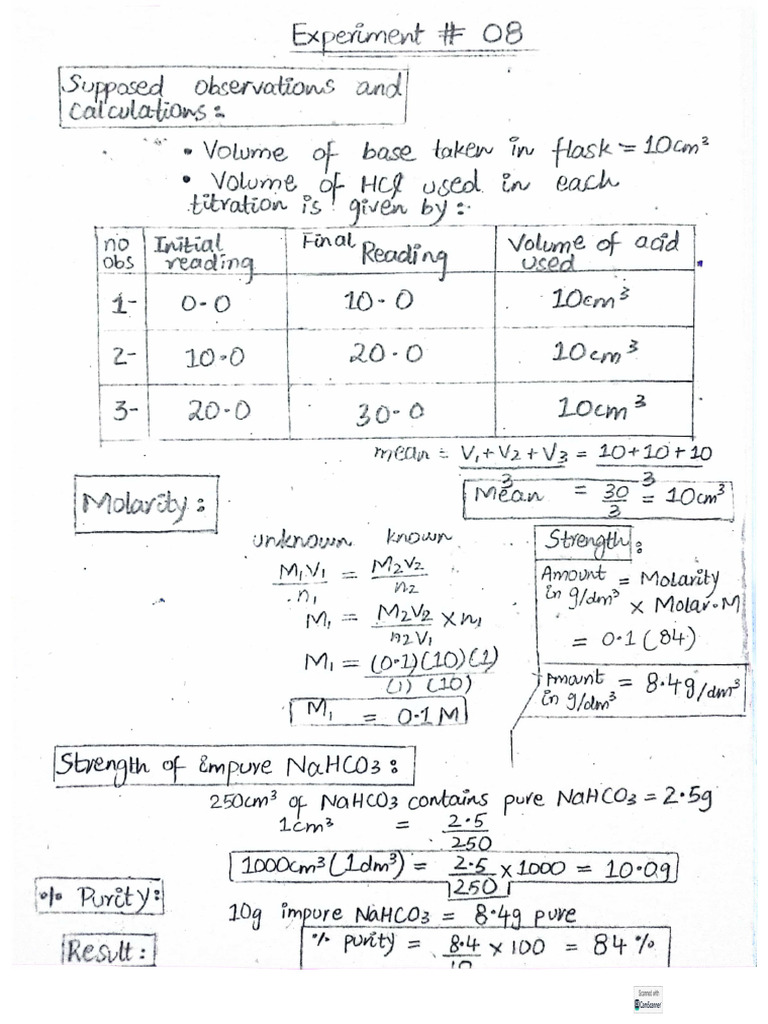 Experiment # 08
Supposed observations and
Calculations:
• Volume of base taken in flask = 10cm³
• Volume of HCl used in each
titration is given by:
no obs | Initial reading | Final Reading | Volume of acid used
1- | 0.0 | 10.0 | 10cm³
2- | 10.0 | 20.0 | 10cm³
3- | 20.0 | 30.0 | 10cm³
mean = V₁+V₂+V₃/3 = 10+10+10/3
Mean = 30/3 = 10cm³
Molarity:
unknown known
M₁V₁/n₁ = M₂V₂/n₂
M₁ = M₂V₂/n₂V₁ × n₁
M₁ = (0.1)(10)(1)/(1)(10)
M₁ = 0.1M
Strength:
Amount in g/dm³ = Molarity
× Molar.M
= 0.1(84)
Amount in g/dm³ = 8.4g/dm³
Strength of impure NaHCO₃:
250cm³ of NaHCO₃ contains pure NaHCO₃ = 2.5g
1cm³ = 2.5/250
1000cm³(1dm³) = 2.5/250 × 1000 = 10.0g
% Purity:
10g impure NaHCO₃ = 8.4g pure
% purity = 8.4/10 × 100 = 84%
Result:
Scanned with
CS CamScanner